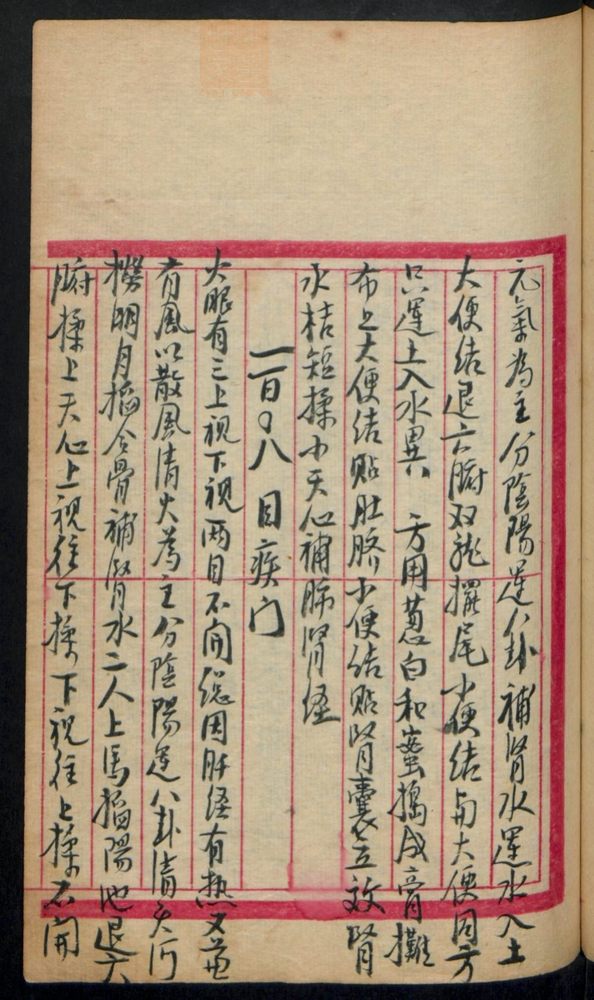 元氣為主分陰陽運八卦補腎水運水入土
大便結退六腑双龍擺尾小便結与大便同方
只運土入水異　方用葱白和蜜搗成膏攤
布上大便結貼肚臍小便結貼腎囊立效腎
水枯短揉小天心補肺腎經
一百〇八　目疾门
火眼有三上視下視两目不開總因肝經有熱又兼
有風以散風清火為主分陰陽運八卦清天河
撈明月掐合骨補腎水二人上馬掐陽池退六
腑揉上天心上視往下揉下視往上揉不開